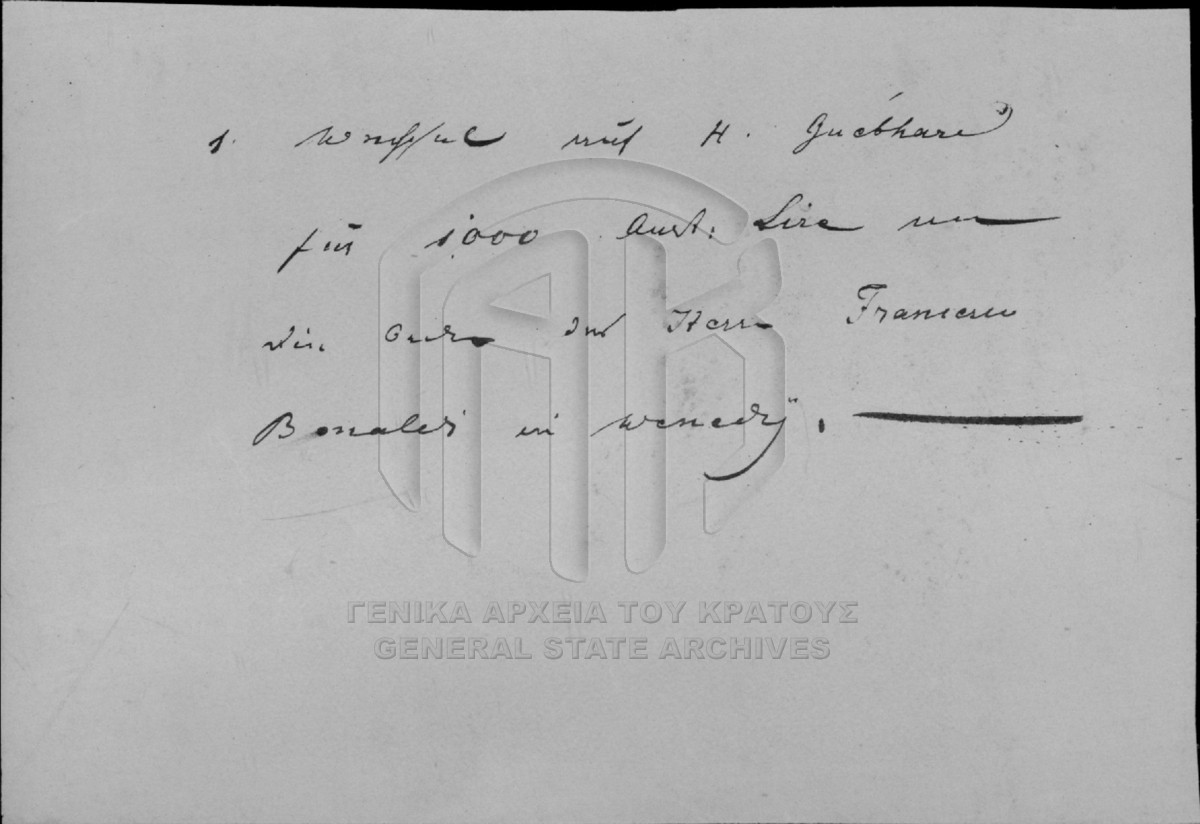 1. Wechsel auf H. Guébhard
für 1,000 Aust. Lire an
die Order des Herrn Francesco
Bonaldi in Venedig.
ΓΕΝΙΚΑ ΑΡΧΕΙΑ ΤΟΥ ΚΡΑΤΟΥΣ
GENERAL STATE ARCHIVES